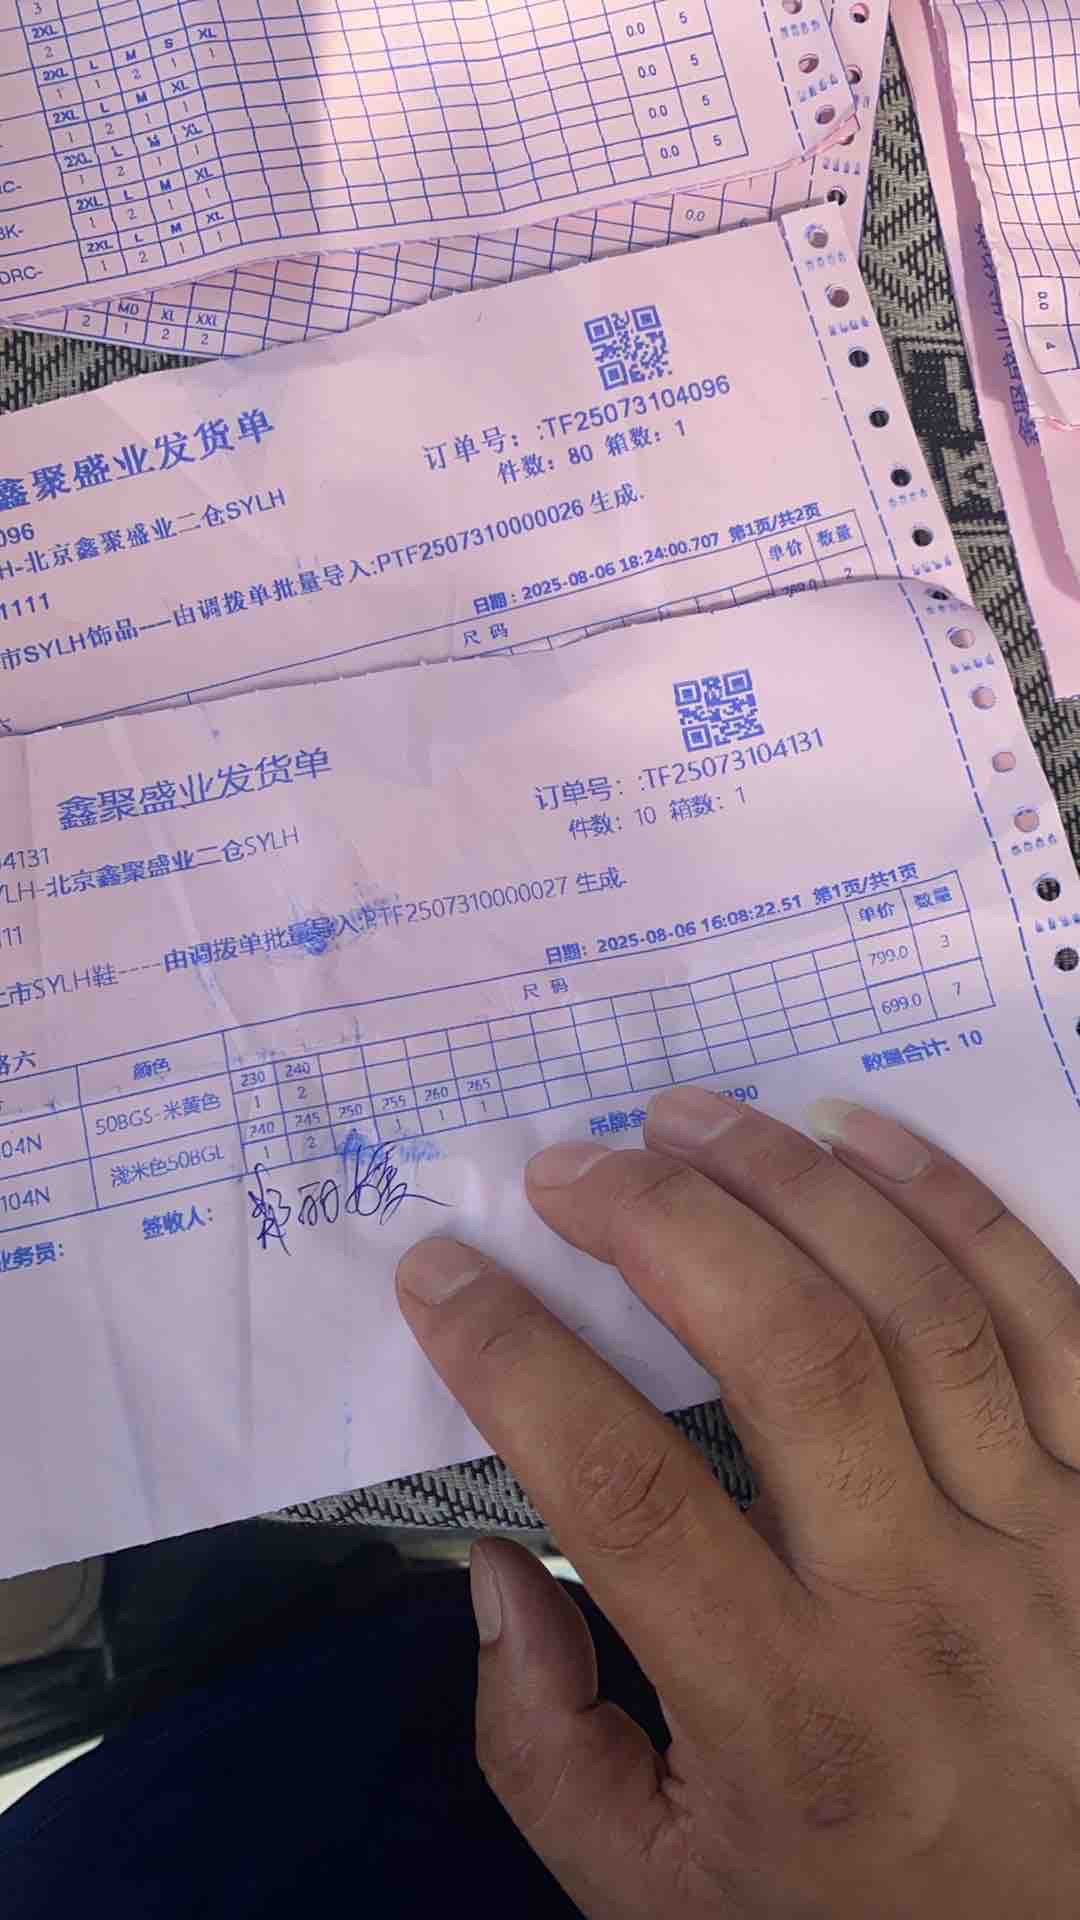 3
2XL
2
2XL L M S XL
1 1 2 1 1 0.0 5
2XL L M XL
1 2 1 1 0.0 5
2XL L M XL
1 2 1 1 0.0 5
2XL L M XL
BK- 1 2 1 1 0.0 5
2XL L M XL
DRC- 1 2 1 1
0.0
MD XL XXL
2 1 2 2
0.0 4
鑫聚盛业发货单
订单号：:TF25073104096
件数：80 箱数：1
096
H-北京鑫聚盛业二仓SYLH
1111
市SYLH饰品---由调拨单批量导入:PTF2507310000026 生成.
日期：2025-08-06 18:24:00.707 第1页/共2页
尺 码 单价 数量
2
鑫聚盛业发货单
订单号：:TF25073104131
件数：10 箱数：1
4131
YLH-北京鑫聚盛业二仓SYLH
11
上市SYLH鞋----由调拨单批量导入:PTF2507310000027 生成.
日期：2025-08-06 16:08:22.51 第1页/共1页
路六 颜色 尺 码 单价 数量
230 240
04N 50BGS-米黄色 1 2 799.0 3
240 245 250 255 260 265
104N 浅米色50BGL 1 2 1 1 1 699.0 7
数量合计: 10
吊牌金 290
业务员： 签收人：